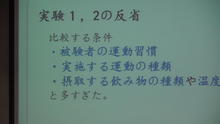 実験1,2の反省
比較する条件
・被験者の運動習慣
・実施する運動の種類
・摂取する飲み物の種類や温度
と多すぎた。